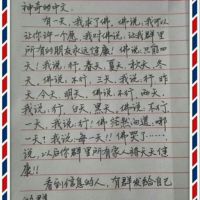 神奇的中文.
有一天,我求了佛,佛说:我可以
让你许一个愿,我对佛说,让我群里
所有的朋友永远健康!佛说,只能四
天!我说,行,春天、夏天、秋天、冬
天,佛说,不行,三天,我说,行,昨
天、今天、明天,佛说,不行,两天,
我说,行,白天、黑天,佛说,不行,
一天,我说,行!佛茫然问道,哪
一天!我说,每一天!!佛哭了……
说,以后你群里所有家人将天天健
康!!
看到信息的人,有群发给自己
的群